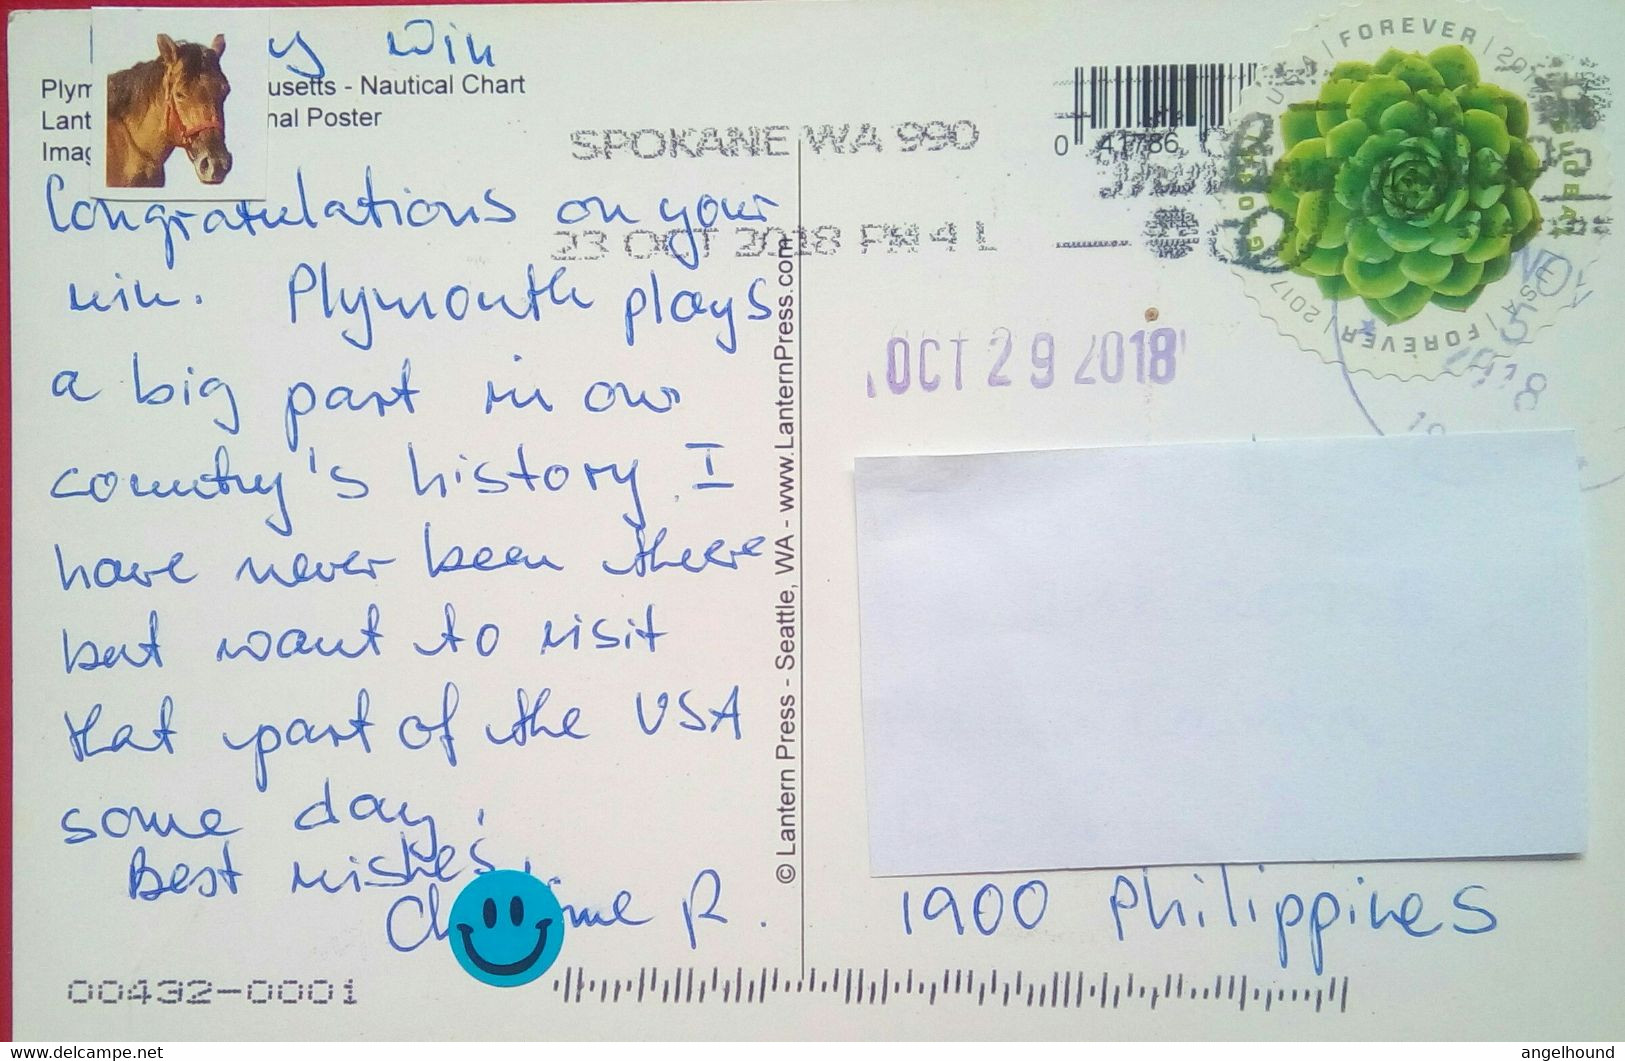 y win
Plym usetts - Nautical Chart
Lant nal Poster
Imag
Congratulations on your
win. Plymouth plays
a big part in our
country's history. I
have never been there
but want to visit
that part of the USA
some day.
Best wishes,
Ch ine R.
00432-0001
© Lantern Press - Seattle, WA - www.LanternPress.com
SPOKANE WA 990
23 OCT 2018 PM 4 L
0 41786
USA FOREVER 2017
USA FOREVER 2017
GLOBAL
OCT 29 2018
1900 Philippines
angelhound
delcampe.net